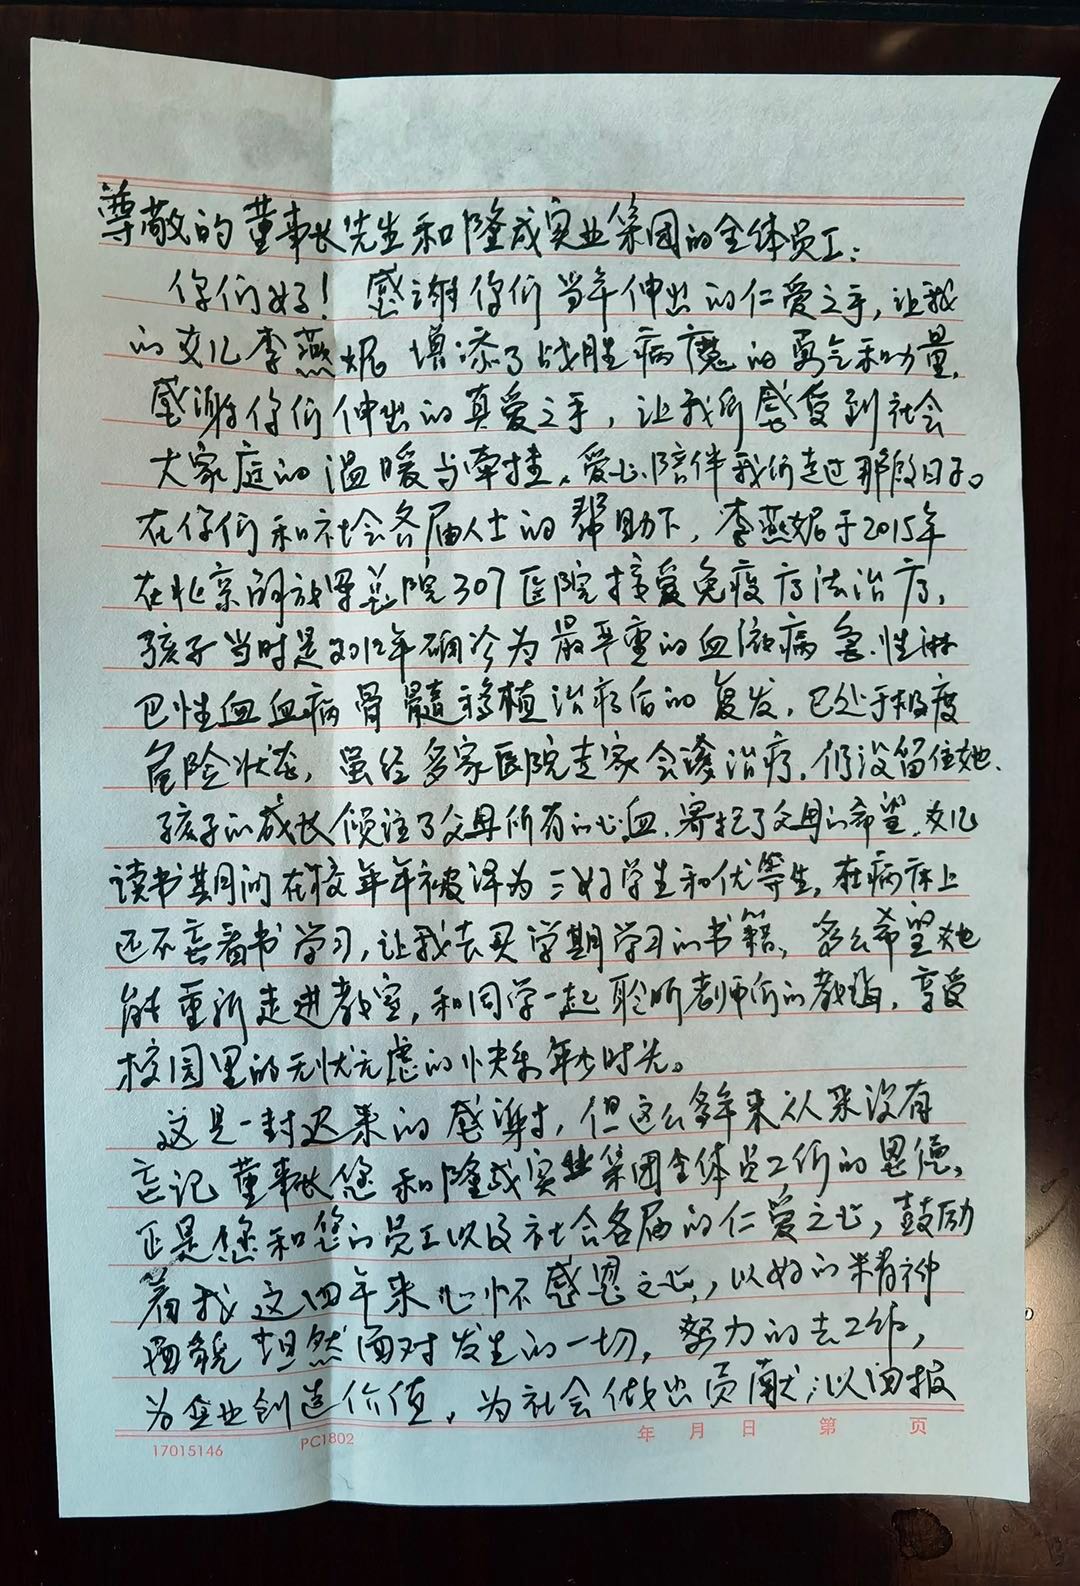 尊敬的董事长先生和隆成实业集团的全体员工：
你们好！感谢你们当年伸出的仁爱之手，让我
的女儿李燕妮增添了战胜病魔的勇气和力量，
感谢你们伸出的真爱之手，让我们感受到社会
大家庭的温暖与牵挂，爱心陪伴我们走过那段日子。
在你们和社会各届人士的帮助下，李燕妮于2015年
在北京解放军总院307医院接受免疫疗法治疗，
孩子当时是2012年确诊为最严重的血液病急性淋
巴性血血病骨髓移植治疗后的复发，已处于极度
危险状态，虽经多家医院专家会诊治疗，仍没留住她、
孩子的成长倾注了父母所有的心血，寄托了父母的希望，女儿
读书其间在校年年被评为三好学生和优等生，在病床上
还不忘看书学习，让我去买学期学习的书籍，多么希望她
能重新走进教室，和同学一起聆听老师们的教诲，享受
校园里的无忧无虑的快乐年少时光。
这是一封迟来的感谢，但这么多年来从来没有
忘记董事长您和隆成实业集团全体员工们的恩德，
正是您和您的员工以及社会各届的仁爱之心，鼓励
着我这四年来心怀感恩之心，以好的精神
面貌坦然面对发生的一切，努力的去工作，
为企业创造价值，为社会做出贡献，以回报
17015146 PC1802 年 月 日 第 页